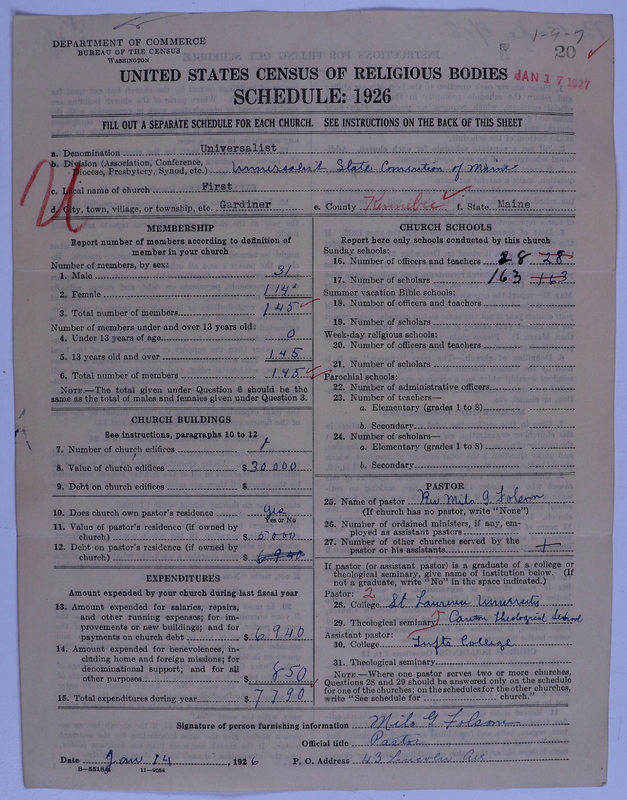 1-9-7
DEPARTMENT OF COMMERCE
BUREAU OF THE CENSUS
WASHINGTON
20
UNITED STATES CENSUS OF RELIGIOUS BODIES
JAN 17 1927
SCHEDULE: 1926
FILL OUT A SEPARATE SCHEDULE FOR EACH CHURCH. SEE INSTRUCTIONS ON THE BACK OF THIS SHEET
a. Denomination Universalist
b. Division (Association, Conference, Diocese, Presbytery, Synod, etc.) Universalist State Convention of Maine
c. Local name of church First
d. City, town, village, or township, etc. Gardiner e. County Kennebec f. State Maine
U
MEMBERSHIP
Report number of members according to definition of
member in your church
Number of members, by sex:
1. Male 31
2. Female 114
3. Total number of members 145
Number of members under and over 13 years old:
4. Under 13 years of age 0
5. 13 years old and over 145
6. Total number of members 145
NOTE.—The total given under Question 6 should be the
same as the total of males and females given under Question 3.
CHURCH BUILDINGS
See instructions, paragraphs 10 to 12
7. Number of church edifices 1
8. Value of church edifices $30000
9. Debt on church edifices $
10. Does church own pastor's residence yes
Yes or No
11. Value of pastor's residence (if owned by
church) $5000
12. Debt on pastor's residence (if owned by
church) $6940
EXPENDITURES
Amount expended by your church during last fiscal year
13. Amount expended for salaries, repairs,
and other running expenses; for im-
provements or new buildings; and for
payments on church debt $6940
14. Amount expended for benevolences, in-
cluding home and foreign missions; for
denominational support; and for all
other purposes $850
15. Total expenditures during year $7790
CHURCH SCHOOLS
Report here only schools conducted by this church
Sunday schools:
16. Number of officers and teachers 28 28
17. Number of scholars 163 163
Summer vacation Bible schools:
18. Number of officers and teachers
19. Number of scholars
Week-day religious schools:
20. Number of officers and teachers
21. Number of scholars
Parochial schools:
22. Number of administrative officers
23. Number of teachers—
a. Elementary (grades 1 to 8)
b. Secondary
24. Number of scholars—
a. Elementary (grades 1 to 8)
b. Secondary
PASTOR
25. Name of pastor Rev Milo G. Folsom
(If church has no pastor, write "None")
26. Number of ordained ministers, if any, em-
ployed as assistant pastors
27. Number of other churches served by the
pastor or his assistants
If pastor (or assistant pastor) is a graduate of a college or
theological seminary, give name of institution below. (If
not a graduate, write "No" in the space indicated.)
Pastor: 2
28. College St Lawrence University
29. Theological seminary Canton Theological School
Assistant pastor:
30. College Tufts College
31. Theological seminary
NOTE.—Where one pastor serves two or more churches,
Questions 28 and 29 should be answered only on the schedule
for one of the churches; on the schedules for the other churches,
write "See schedule for church."
Signature of person furnishing information Milo G Folsom
Official title Pastor
Date Jan 14, 1926 P. O. Address 43 Lincoln Ave
8-5518a 11-9084